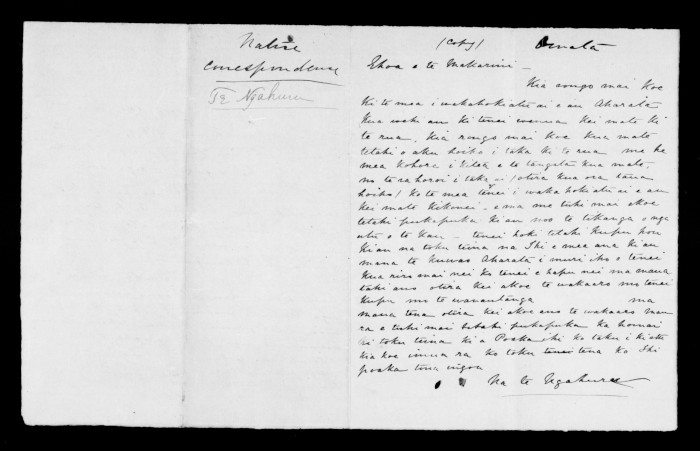 Native
Correspondence
Te Ngahuru
(Copy) Omata
Ehoa e te Makarini -
Kia rongo mai koe
Ki te mea i wakahokiatu ai e au Aharata
Kua wehi au ki tenei wenua kei mate ki
te rua. Kia rongo mai koe kua mate
tetahi o aku hoiho i taka ki te rua me he
mea kohore i kitea e te tangata kua mate,
no te rahoroi i taka ai / otira kua ora taua
hoiho / Ko te mea tenei i waka hokiatu ai e au
kei mate kikonei. - e ma me tuhi mai ekoe
tetahi pukapuka ki au mo te tikanga o nga
utu o te Kau - tenei hoki tetahi kupu hou
Ki au na toku teina na Ihi e mea ana ki au
mana te Kuwao Aharata i muri iho o tenei
Kua riro mai nei ko tenei e hapu nei ma maua
tahi ano otira kei akoe te wakaaro mo tenei
Kupu mo te wanautanga ma
maua tena otira kei akoe ano te wakaaro
ra e tuhi mai tetahi pukapuka ka homai
ki toku teina ki a Poaka ihi ko taku i kiatu
kia koe inua ra ko toku tena ko Ihi
poaka tona ingoa
Na te Ngahuru